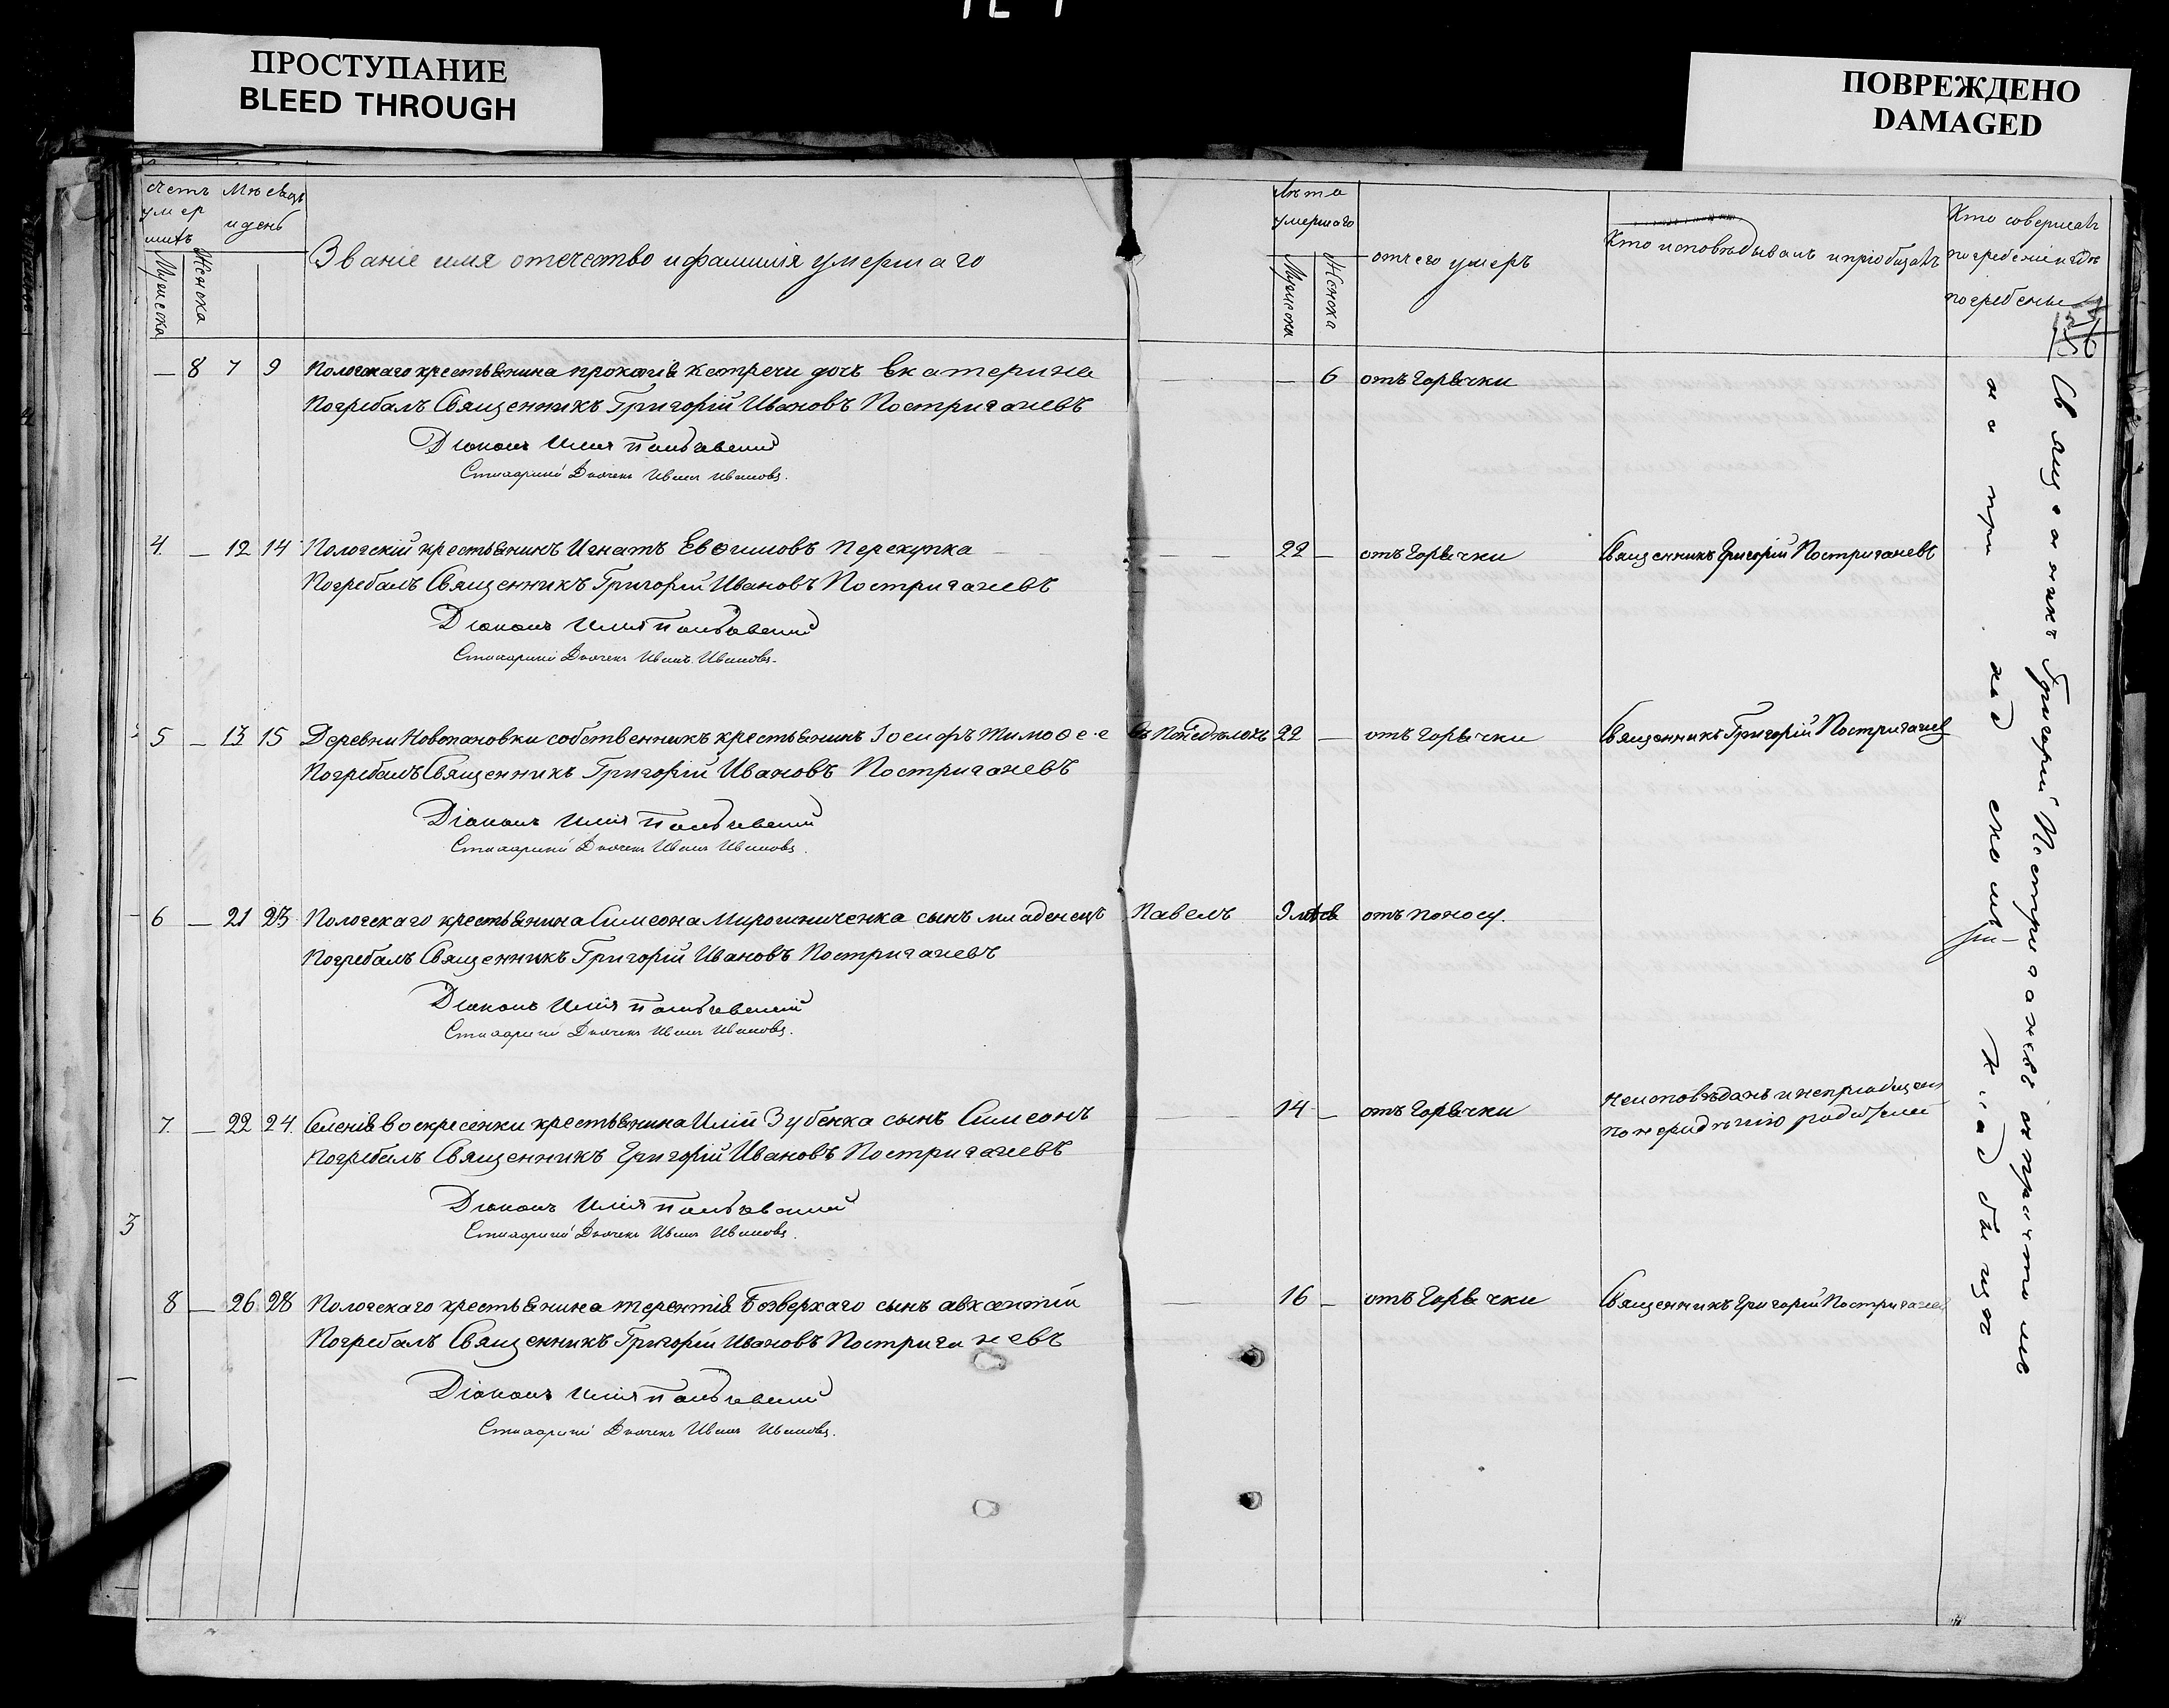 ПРОСТУПАНИЕ
BLEED THROUGH
ПОВРЕЖДЕНО
DAMAGED
счетъ умер шихъ
Мужеска
Женска
Мѣсяцъ и день
Званіе имя отечество и фамилія умершаго
Лѣта умершаго
Мужска
Женска
отчего умеръ
Кто исповѣдывалъ и пріобщалъ
Кто совершалъ погребеніе и гдѣ погребены
— 8 7 9 Пологскаго крестьянина Прокопія дочь Екатерина — — 6 отъ горячки
Погребалъ Священникъ Григорій Ивановъ Постриганевъ
Діаконъ Илія
Стихарный Дьячекъ Иванъ Ивановъ.
4. — 12 14 Пологскій крестьянинъ Игнатъ Евѳимовъ Перехупка — 22 — отъ горячки Священникъ Григорій Постриганевъ
Погребалъ Священникъ Григорій Ивановъ Постриганевъ
Діаконъ Илія
Стихарный Дьячекъ Иванъ Ивановъ.
5 — 13 15 Деревни Новопановки собственникъ крестьянинъ Іосифъ Тимоѳее въ 22 — отъ горячки Священникъ Григорій Постриганев
Погребалъ Священникъ Григорій Ивановъ Постриганевъ
Діаконъ Илія
Стихарный Дьячекъ Иванъ Ивановъ.
6 — 21 23 Пологскаго крестьянина Симеона Мирошниченка сынъ младенецъ Павелъ 9 мѣся отъ поносу.
Погребалъ Священникъ Григорій Ивановъ Постриганевъ
Діаконъ Илія
Стихарный Дьячекъ Иванъ Ивановъ.
7. — 22 24. Селенія Воскресенки крестьянина Иліи Зубенка сынъ Симеонъ — 14 — отъ горячки неисповѣданъ и непріобщен
по нерадѣнію родителей
Погребалъ Священникъ Григорій Ивановъ Постриганевъ
Діаконъ Илія
Стихарный Дьячекъ Иванъ Ивановъ.
3
8 — 26 28 Пологскаго крестьянина Терентія сынъ — 16 — отъ горячки Священникъ Григорій Постриганев
Погребалъ Священникъ Григорій Ивановъ Постриганевъ
Діаконъ Илія
Стихарный Дьячекъ Иванъ Ивановъ.
Священникъ Григорій Постриганевъ съ причтомъ
на приходскомъ кладбищѣ